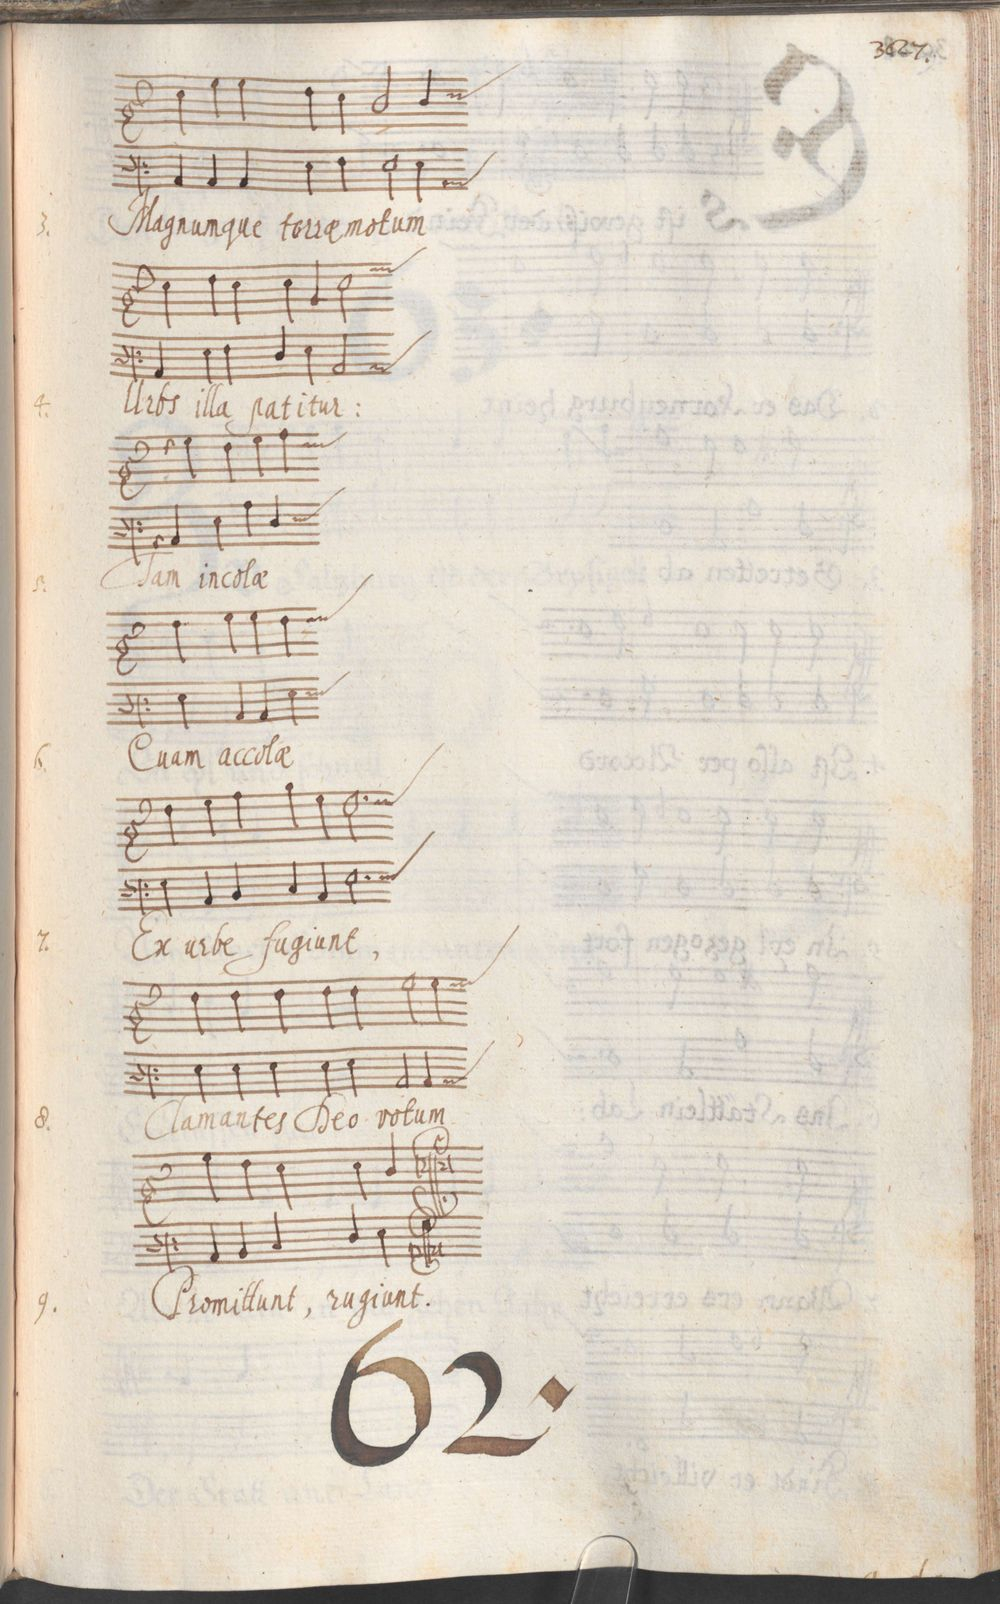 3627.
3. Magnumque terræmotum
4. Urbs illa patitur:
5. Tam incolæ
6. Cuam accolæ
7. Ex urbe fugiunt,
8. Clamantes Deo votum
9. Promittunt, rugiunt.
62.